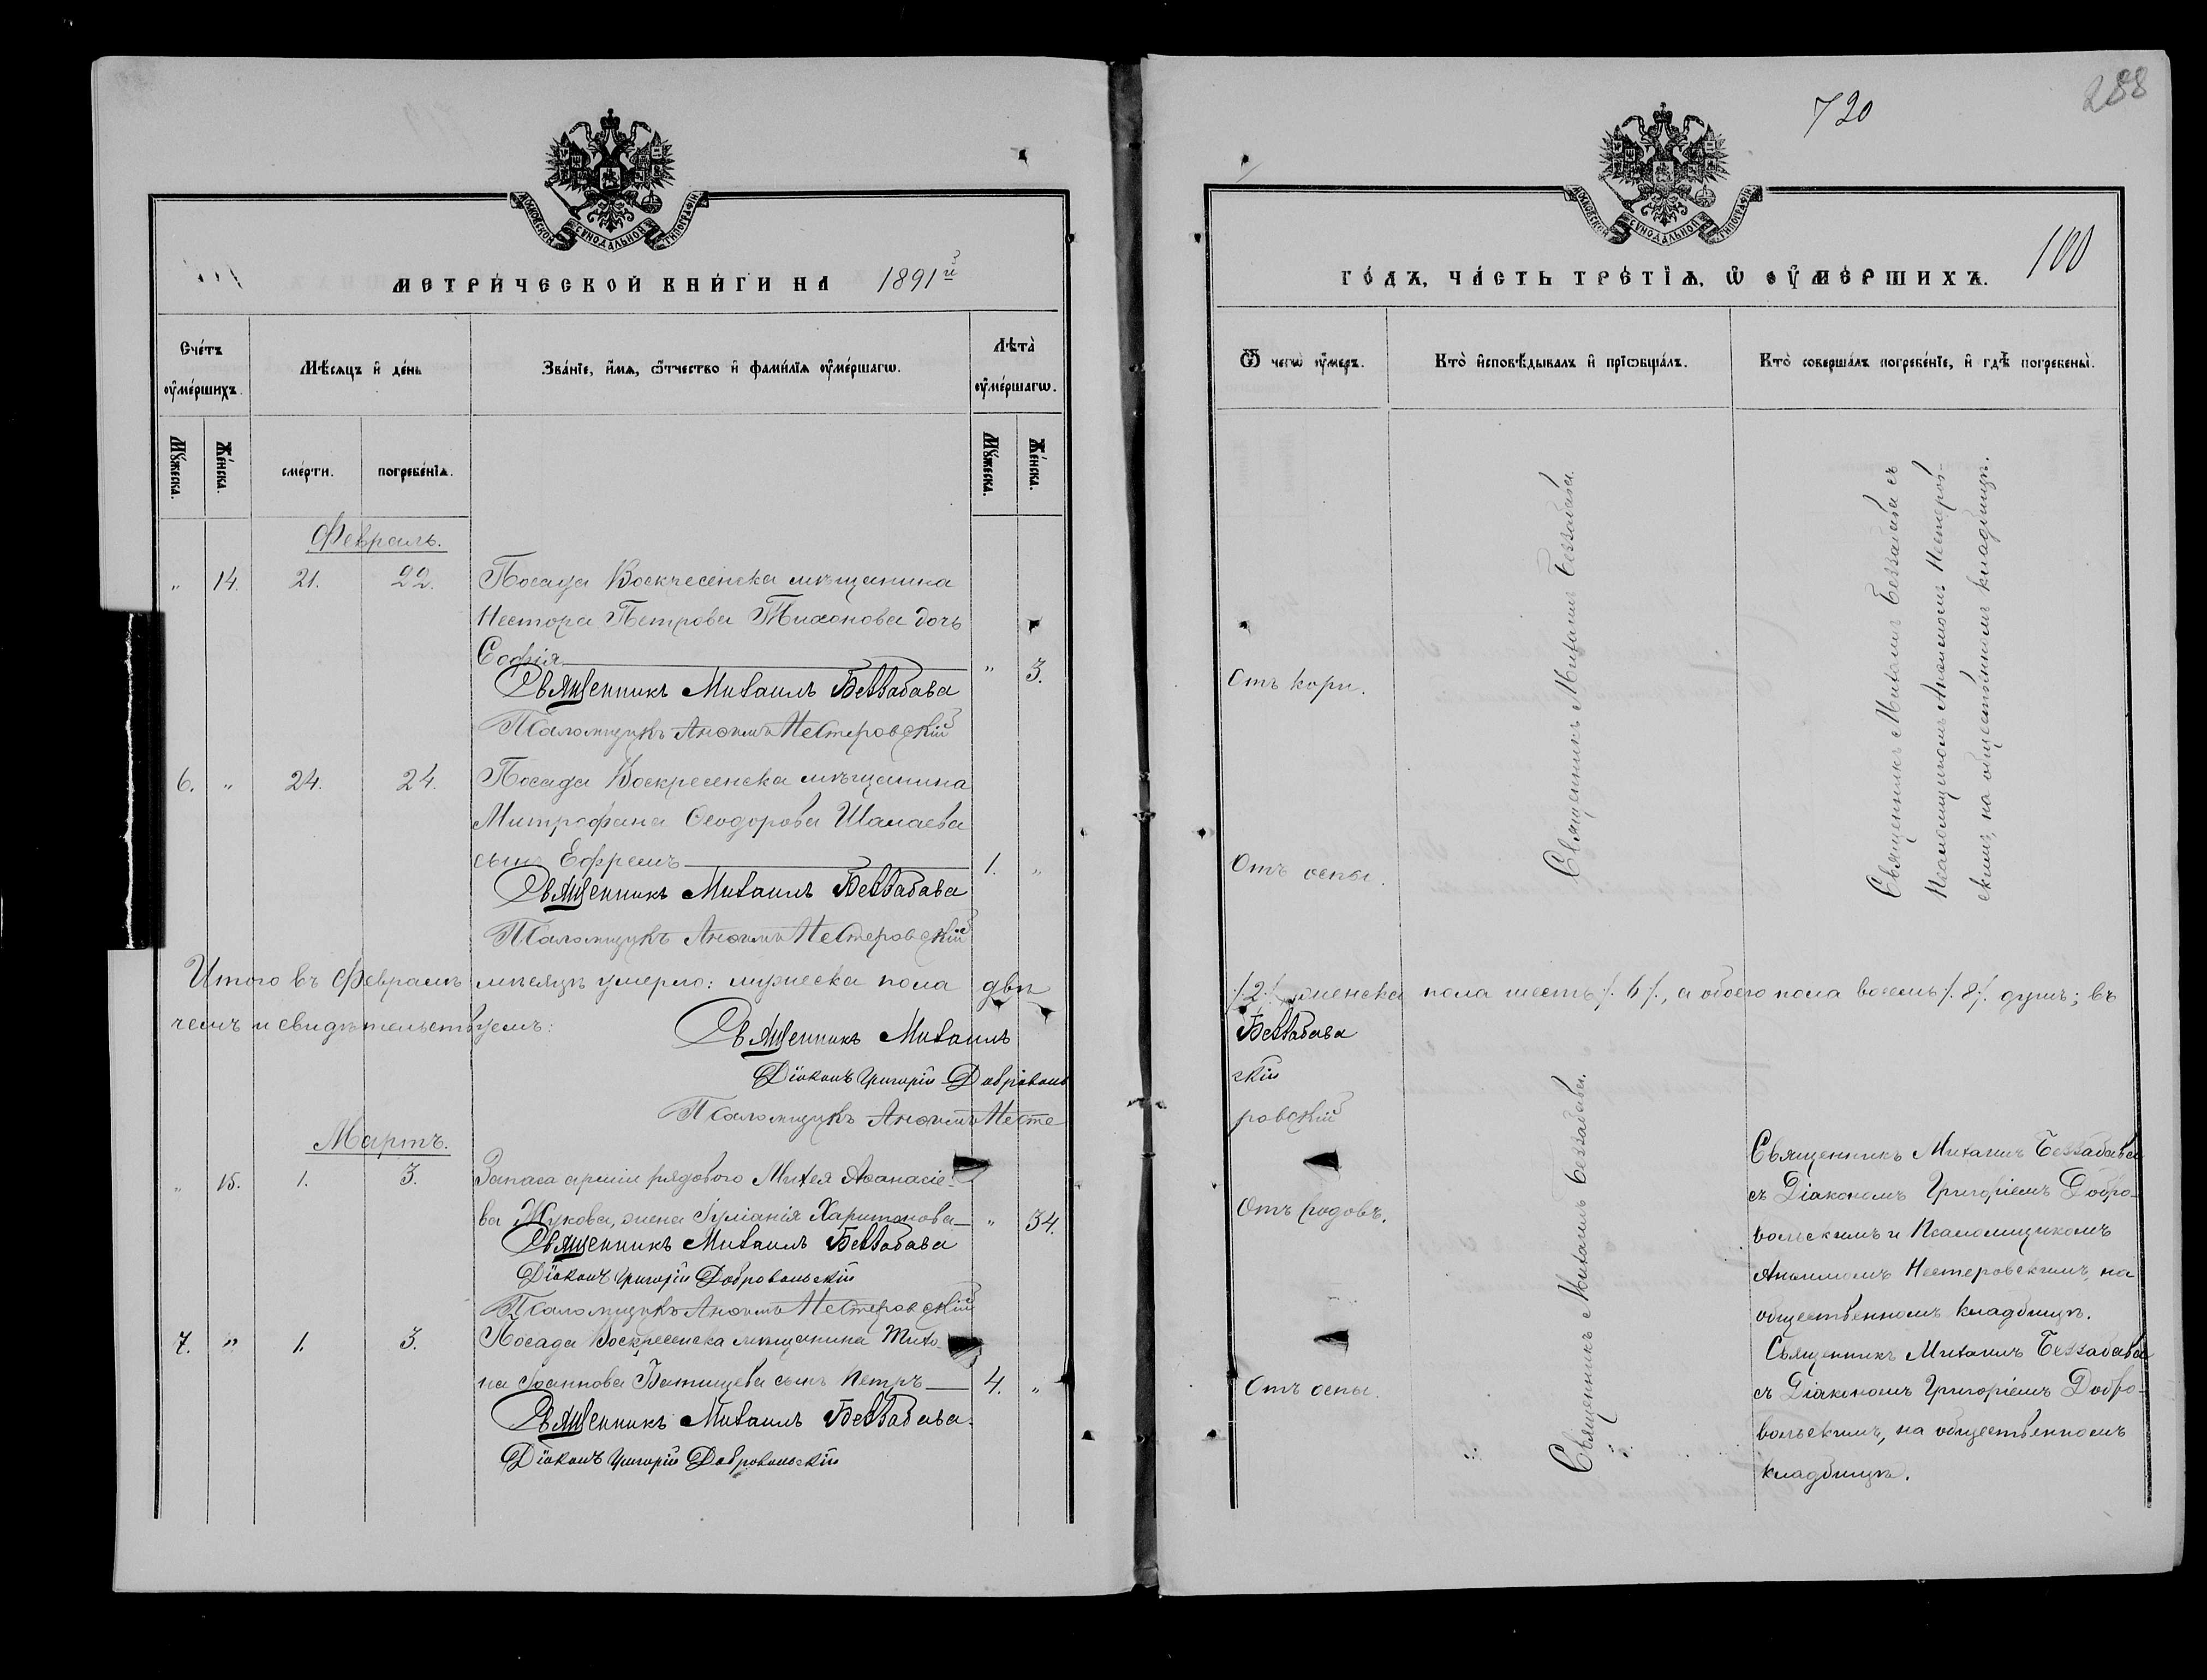 МОСКОВСКОЙ СѴНОДАЛЬНОЙ ТИПОГРАФІИ
МЕТРИ́ЧЕСКОЙ КНИ́ГИ НА 1891й
Сче́тъ ᲂу҆ме́ршихъ.
Мѣ́сяцъ и҆ де́нь
Зва́нїе, и҆́мѧ, ѻ҆́тчество и҆ фами́лїѧ ᲂу҆ме́ршагѡ.
Лѣ́та ᲂу҆ме́ршагѡ.
Мꙋ́жеска.
Же́нска.
сме́рти.
погребе́нїѧ.
Мꙋ́жеска.
Же́нска.
Февраль.
" 14. 21. 22. Посада Воскресенска мѣщанина
Нестора Петрова Тихонова дочь
Софія " 3.
Священникъ Михаилъ Беззабава
Псаломщикъ Анѳимъ Нестеровскій
6. " 24. 24. Посада Воскресенска мѣщанина
Митрофана Ѳеодорова Шалаева
сынъ Ефремъ 1. "
Священникъ Михаилъ Беззабава
Псаломщикъ Анѳимъ Нестеровскій
Итого въ Февралѣ мѣсяцѣ умерло: мужеска пола двѣ
чемъ и свидѣтельствуемъ:
Священникъ Михаилъ
Діаконъ Григорій Доброволь
Псаломщикъ Анѳимъ Несте
Мартъ.
" 15. 1. 3. Запаса арміи рядового Михея Аѳанасіе-
ва Жукова, жена Іуліанія Харитонова " 34.
Священникъ Михаилъ Беззабава
Діаконъ Григорій Добровольскій
Псаломщикъ Анѳимъ Нестеровскій
7. " 1. 3. Посада Воскресенска мѣщанина Тихо-
на Іоаннова Батищева сынъ Петръ 4. "
Священникъ Михаилъ Беззабава.
Діаконъ Григорій Добровольскій
720
288
МОСКОВСКОЙ СѴНОДАЛЬНОЙ ТИПОГРАФІИ
100
ГО́ДЪ, ЧА́СТЬ ТРЕ́ТЇѦ, Ѡ҆ ОУ҆МЕ́РШИХЪ.
Ѿ чегѡ̀ ᲂу҆́меръ.
Кто̀ и҆сповѣ́дывалъ и҆ прїѡбща́лъ.
Кто̀ соверша́лъ погребе́нїе, и҆ гдѣ̀ погребены̀.
Отъ кори.
Отъ оспы.
Священникъ Михаилъ Беззабава.
Священникъ Михаилъ Беззабава съ
Псаломщикомъ Анѳимомъ Нестеров-
скимъ, на общественномъ кладбищѣ.
/.2./. женска пола шесть /. 6 /., а обоего пола восемь /. 8 /. душъ; въ
Беззабава
скій
ровскій
Отъ родовъ.
Отъ оспы.
Священникъ Михаилъ Беззабава.
Священникъ Михаилъ Беззабава
съ Діакономъ Григоріемъ Добро-
вольскимъ и Псаломщикомъ
Анѳимомъ Нестеровскимъ, на
общественномъ кладбищѣ.
Священникъ Михаилъ Беззабава
съ Діакономъ Григоріемъ Добро-
вольскимъ, на общественномъ
кладбищѣ.